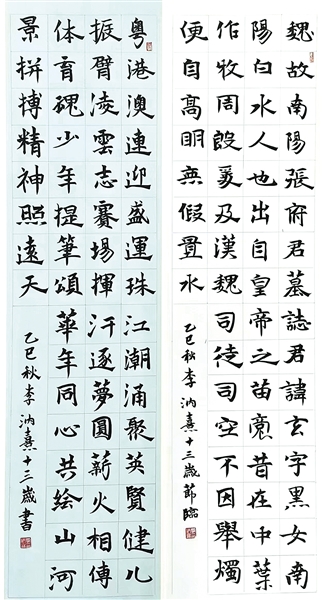 魏故南陽張府君墓誌君諱玄字黑女南
陽白水人也出自皇帝之苗裔昔在中葉
作牧周殷爰及漢魏司徒司空不因舉燭
便自高明無假置水
乙巳秋李汭熹十三歲節臨
粵港澳連迎盛運珠江潮涌聚英賢健儿
振臂淩雲志賽場揮汗逐夢圓薪火相傳
体育魂少年提筆頌華年同心共絵山河
景拼搏精神照遠天
乙巳秋李汭熹十三歲書